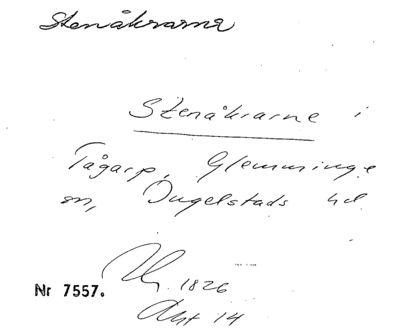 Stenåkrarna
Stenåkrarne i
Tågarp, Glemminge
sn, Ingelstads hd
1826
Nr 7557.
Akt 14